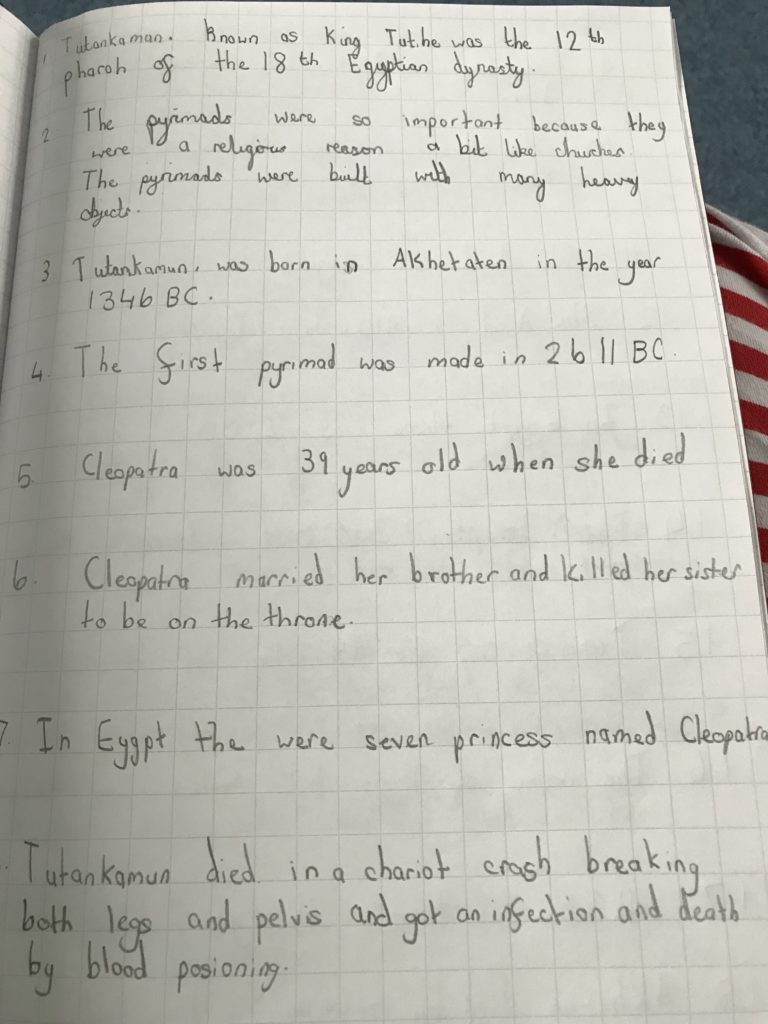 1 Tutankaman. Known as King Tut.he was the 12th
pharoh of the 18th Egyptian dynasty.
2 The pyrimads were so important because they
were a religious reason a bit like churches.
The pyrimads were built with many heavy
objects.
3 Tutankamun, was born in Akhetaten in the year
1346 BC.
4. The first pyrimad was made in 2611 BC.
5. Cleopatra was 39 years old when she died
6. Cleopatra married her brother and killed her sister
to be on the throne.
7. In Eygpt the were seven princess named Cleopatra
Tutankamun died in a chariot crash breaking
both legs and pelvis and got an infection and death
by blood posioning.